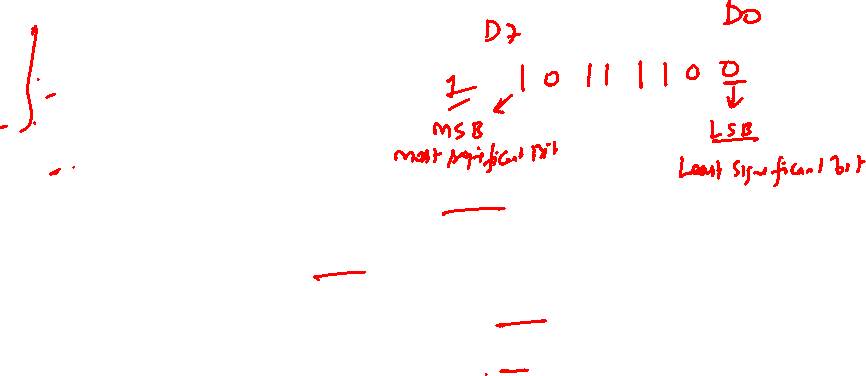 D7 D0
1 1 0 1 1 1 1 0 0
MSB LSB
Most significant Bit Least Significant bit